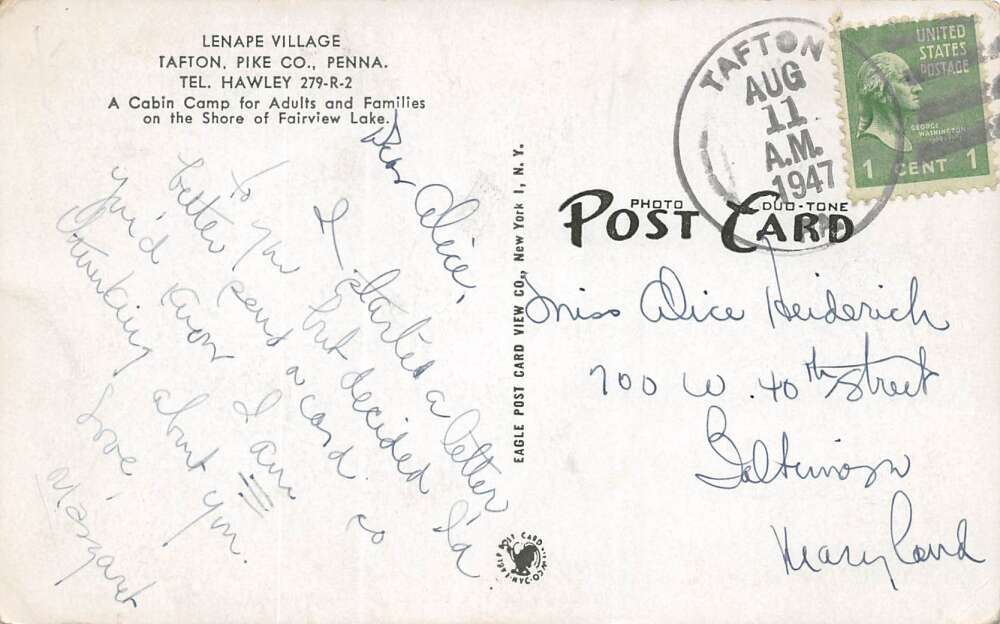 LENAPE VILLAGE
TAFTON, PIKE CO., PENNA.
TEL. HAWLEY 279-R-2
A Cabin Camp for Adults and Families
on the Shore of Fairview Lake.
Dear Alice,
I started a letter
to you but decided I'd
better send a card so
you'd know I am
thinking about you.
Love,
Margaret
EAGLE POST CARD VIEW CO., New York 1, N. Y.
EAGLE POST CARD V.W. CO. NYC
TAFTON
AUG
11
A.M.
1947
PA
UNITED
STATES
POSTAGE
GEORGE
WASHINGTON
1 CENT 1
PHOTO DUO-TONE
POST CARD
Miss Alice Heiderich
700 W. 40th Street
Baltimore
Maryland